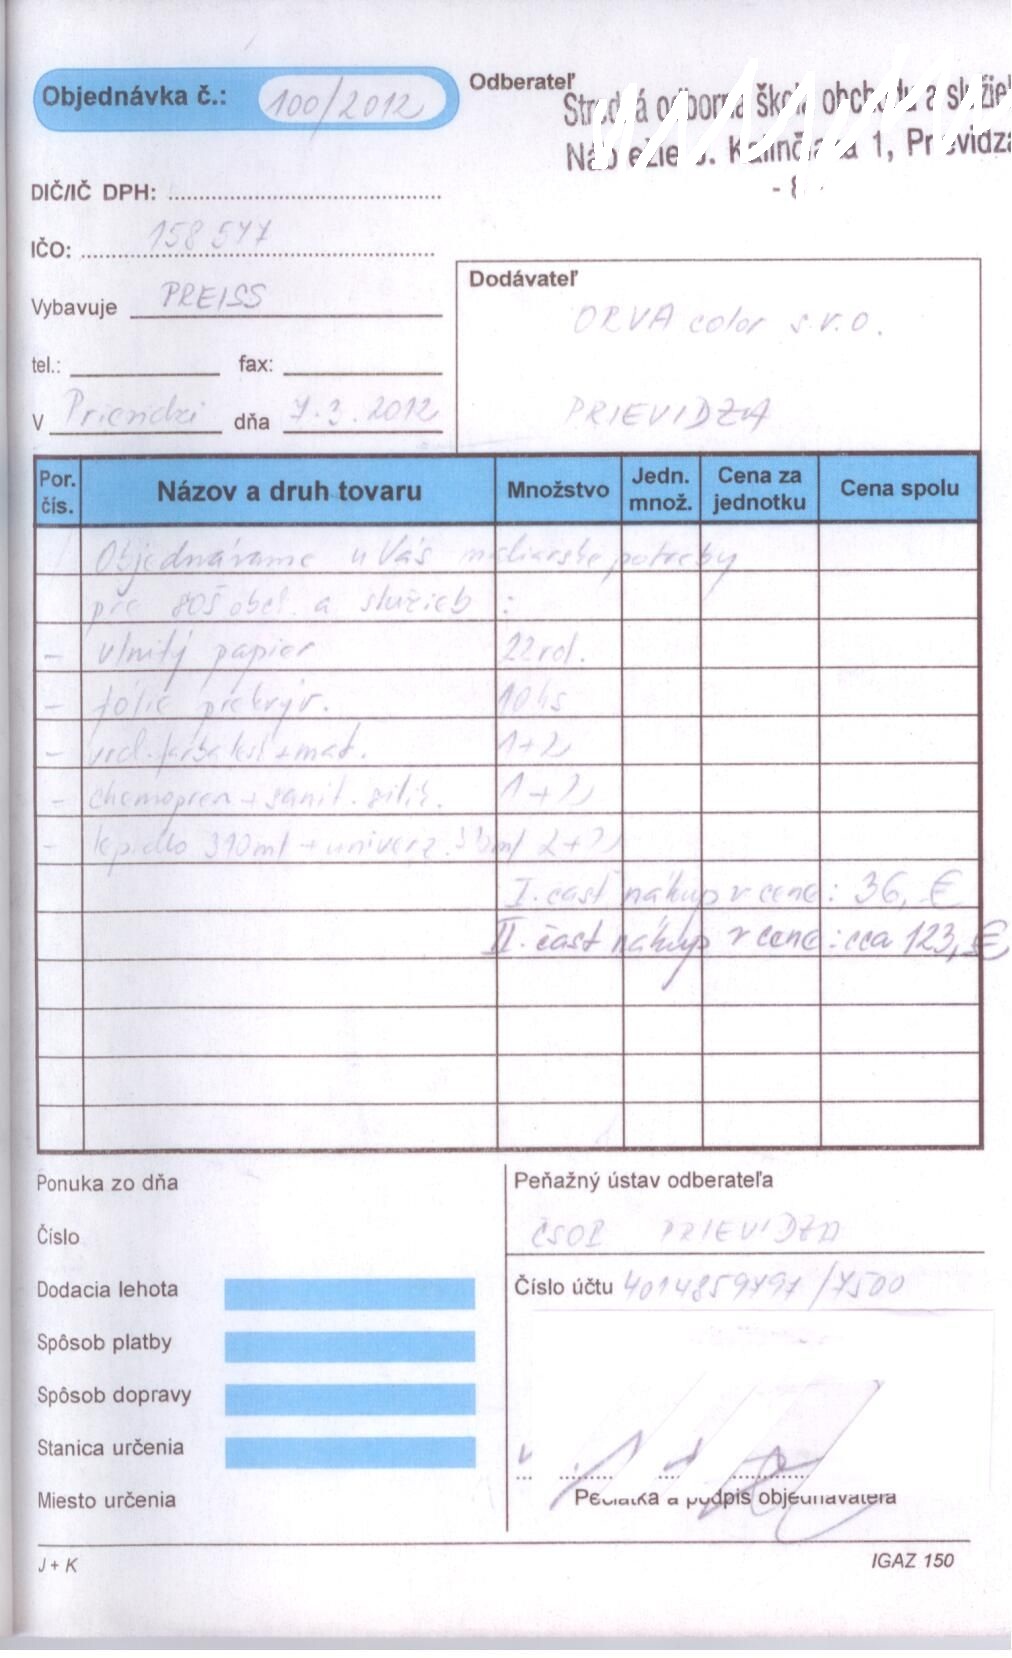 Objednávka č.: 100/2012
Odberateľ
Stredná odborná škola obchodu a služieb
Nábrežie J. Kalinčiaka 1, Prievidza
- 8 -
DIČ/IČ DPH:
IČO: 158 577
Vybavuje PREISS
tel.: fax:
V Prievidzi dňa 7.3.2012
Dodávateľ
ORVA color s.r.o.
PRIEVIDZA
Por. čís. Názov a druh tovaru Množstvo Jedn. množ. Cena za jednotku Cena spolu
Objednávame u Vás maliarske potreby
pre SOŠ obch. a služieb :
- vlnitý papier 22 rol.
- fólie prekrýv. 10 ks
- mat. 1+2
- chemopren + sanit. silik. 1+2
- lepidlo 310ml + univerz. 2+2
I. časť nákup v cene: 36,- €
II. časť nákup v cene: cca 123,- €
Ponuka zo dňa
Číslo
Dodacia lehota
Spôsob platby
Spôsob dopravy
Stanica určenia
Miesto určenia
Peňažný ústav odberateľa
ČSOB PRIEVIDZA
Číslo účtu 4014859797/7500
Pečiatka a podpis objednávateľa
J + K
IGAZ 150